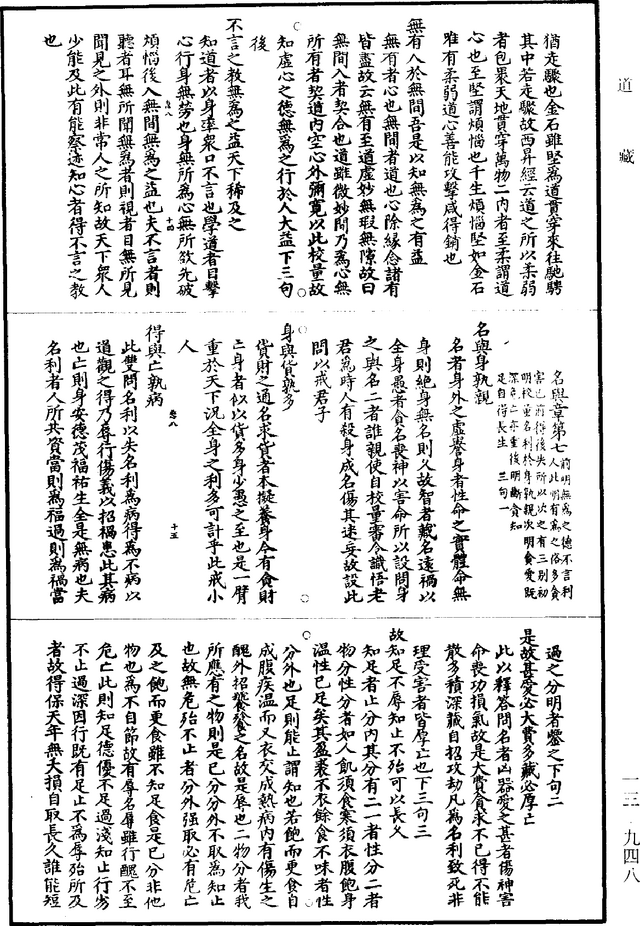 道藏
猶走驟也金石雖堅為道貫穿來往馳騁
其中若走驟故西昇經云道之所以柔弱
者包裹天地貫穿萬物二內者至柔謂道
心也至堅謂煩惱也千生煩惱堅如金石
唯有柔弱道心善能攻擊咸得銷也
無有人於無間吾是以知無為之有益
無有者心也無間者道也心除緣念諸有
皆盡故云無有至道虛妙無瑕無隙故曰
無間入者契合也道雖微妙間乃為心無
所有者契道內空心外彌寬以此校量故
知虛心之德無為之行於人大益下三句
後
不言之教無為之益天下稀及之
知道者以身率衆口不言也學道者目擊
心行身無勞也身無所為心無所欲先破
煩惱後入無間無為之益也夫不言者則
聽者耳無所聞無為者則視者目無所見
聞見之外則非常人之所知故天下衆人
少能及此有能察迹知心者得不言之教
也
名與章第七
前明無為之德不言利
人此明有為之俗多貪
害己前得後失所以次之有三別初
明校量名利於身孰親次明貪愛既
深危亡亦重後明斷貪知
足自得長生 三句一
名與身孰親
名者身外之虛譽身者性命之實體命無
身則絕身無名則久故智者藏名遠禍以
全身愚者貪名喪神以害命所以設問身
之與名二者誰親使自校量審令識悟老
君為時人有殺身成名傷其迷妄故設此
問以戒君子
身與貨孰多
貨財之通名求貨者本擬養身今有貪財
亡身者似以貨多身少愚之至也是一臂
重於天下況全身之利多可計乎此戒小
人
得與亡孰病
此雙問名利以失名利為病得為不病以
道觀之得乃辱行傷義以招禍患此其病
也亡則身安德茂福祐生全是無病也夫
名利者人所共資當則為福過則為禍當
過之分明者鑒之下句二
是故甚愛必大費多藏必厚亡
此以釋答問名者凶器愛之甚者傷神害
命喪功損氣故是大費貪求不已得不能
散多積深藏自招攻劫凡為名利致死非
理受害者皆厚亡也下三句三
故知足不辱知止不殆可以長久
知足者止分內其分有二一者性分二者
物分性分者如人飢須食寒須衣腹飽身
溫性已足矣其盈裘不衣餘食不味者性
分外也足則能止謂知也若飽而更食自
成腹疾溫而又衣交成熱病內有傷生之
醜外招饕餮之名故是辱也二物分者我
所應有之物則是己分分外不取為知止
也故無危殆不止者分外強取必有危亡
及之飽而更食雖不知足食是己分非他
物也為不自節故有辱名辱雖行醜不至
危亡此則知足德優不足過淺知止行劣
不止過深因行既有足止不為辱殆所及
者故得保天年無夭損自取長久誰能短
卷八
十四
卷八
十五
一三·九四八